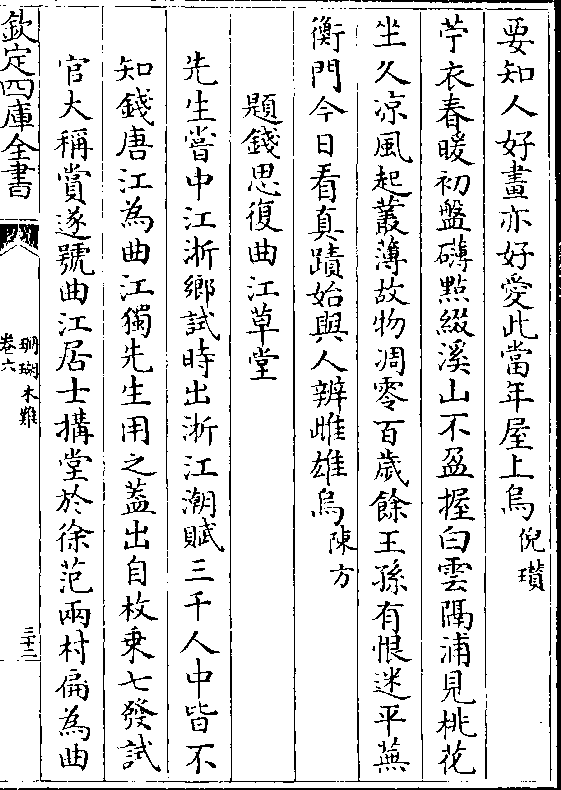 要知人好畫亦好愛此當年屋上烏倪瓚
苧衣春暖初盤礴㸃綴溪山不盈握白雲隔浦見桃花
坐久凉風起叢薄故物凋零百歲餘王孫有恨迷平蕪
衡門今日看真蹟始與人辨雌雄烏陳方
題錢思復曲江草堂
先生嘗中江浙鄉試時出浙江潮賦三千人中皆不
知錢唐江為曲江獨先生用之葢出自枚乗七發試
官大稱賞遂號曲江居士搆堂於徐范兩村扁為曲
欽定四庫全書
珊瑚木難
卷六
三十三